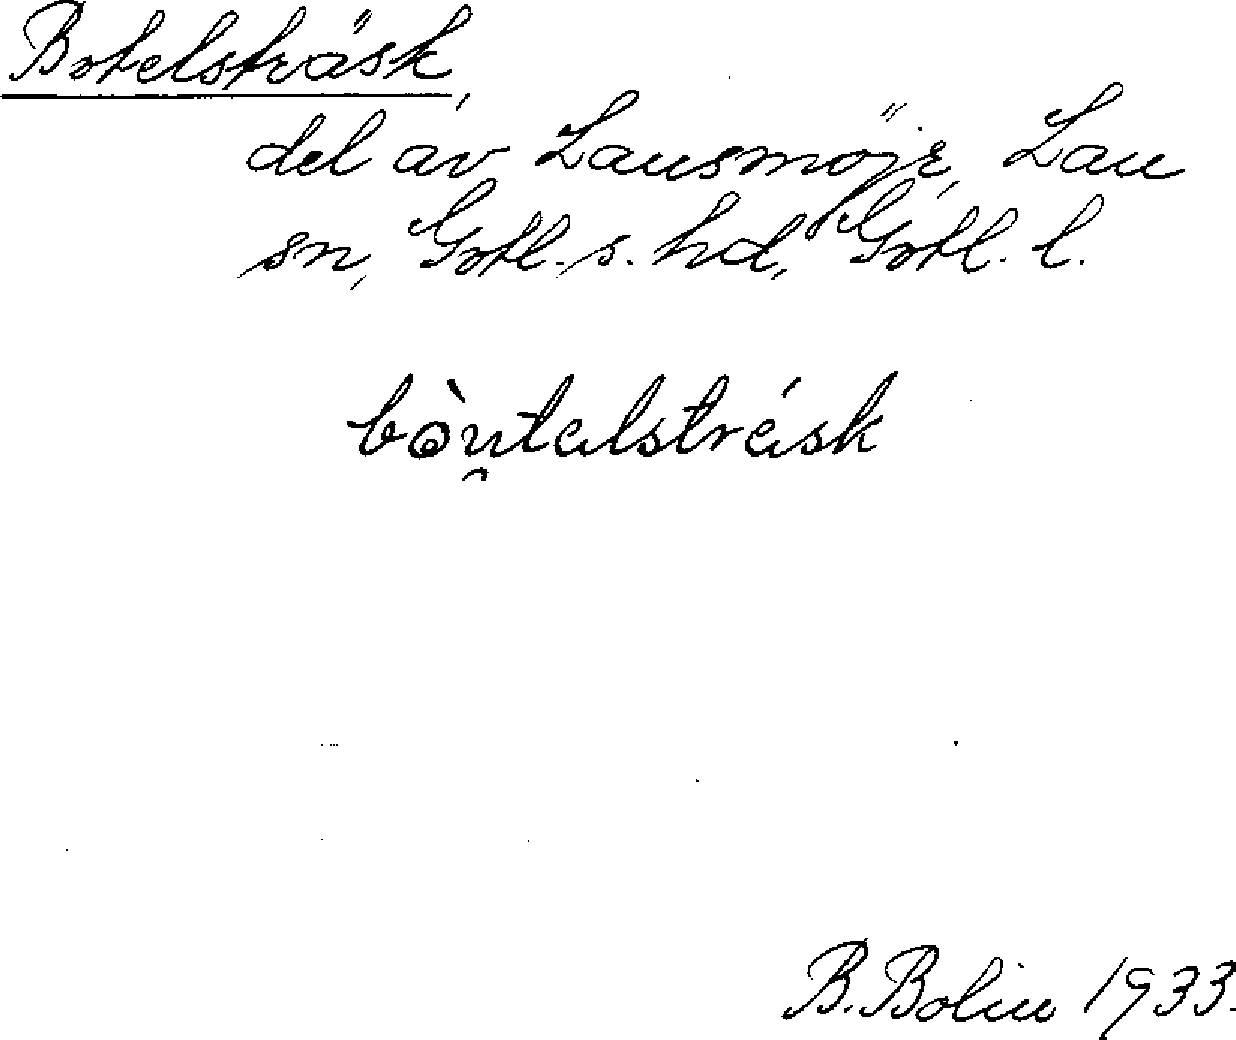 Botelsträsk,
del av Lausmöjr, Lau
sn, Gotl. s. hd, Gotl. l.
bòu̯talstrásk
B. Bolin 1933.